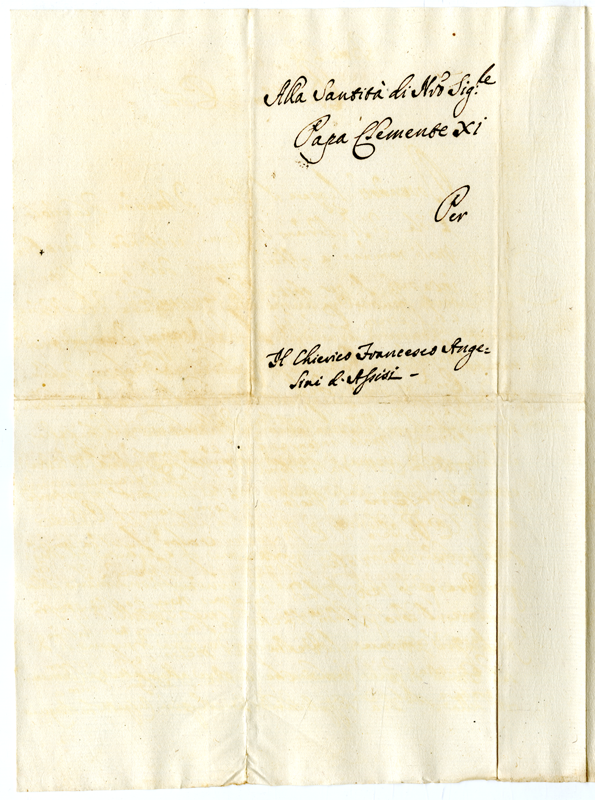 Alla Santità di Nro Sig.re
Papa Clemente XI
Per
Il Chierico Francesco Ange=
lini d'Assisi -